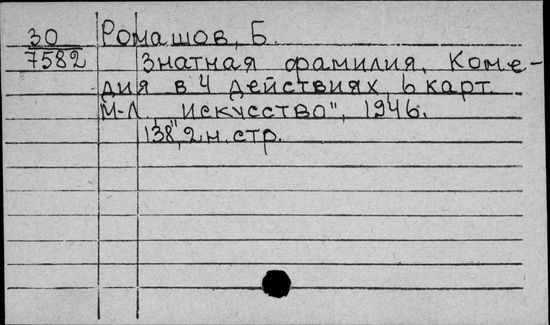 30 Ромашов, Б.
7582 Знатная фамилия. Коме-
дия в 4 действиях, 6 карт.
М-Л. "Искусство", 1946.
138, 2 н. стр.